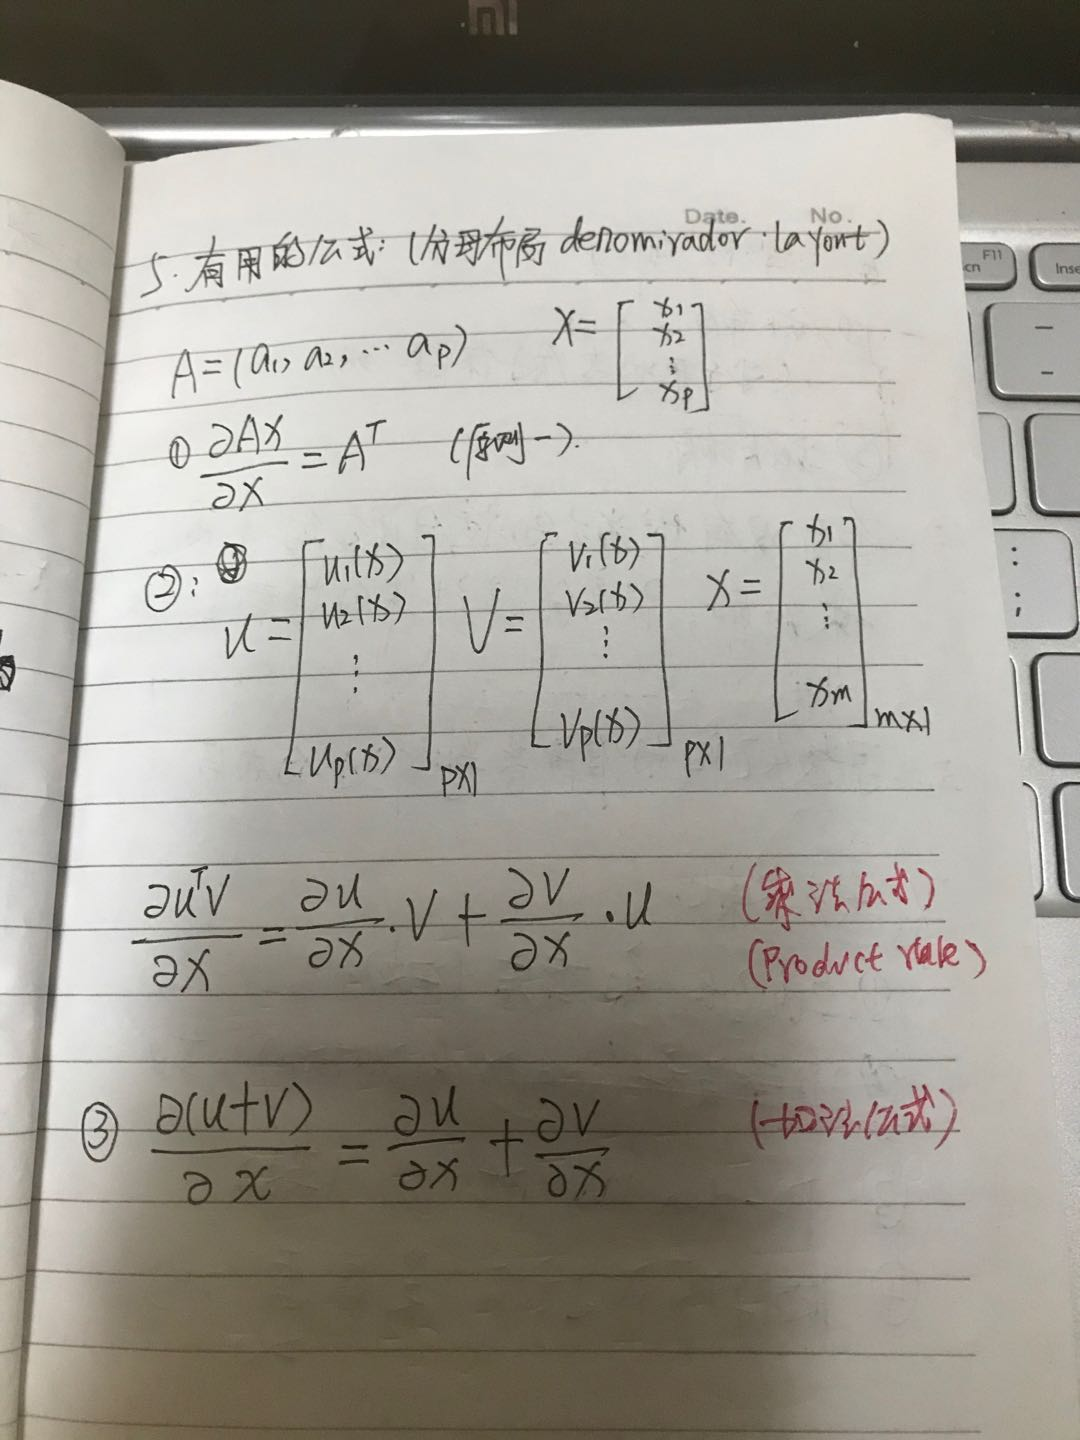 mi
Date. No.
5. 有用的公式: (分母布局 denomirador layout)
A=(a₁, a₂, ⋯ aₚ) X= [x₁ x₂ ⋮ xₚ]
① ∂AX/∂X = Aᵀ (原则一).
②: u= [u₁(x) u₂(x) ⋮ uₚ(x)]ₚₓ₁ V= [v₁(x) v₂(x) ⋮ vₚ(x)]ₚₓ₁ X= [x₁ x₂ ⋮ xₘ]ₘₓ₁
∂uᵀV/∂X = ∂u/∂X · V + ∂V/∂X · u (乘法公式)
(Product rule)
③ ∂(u+V)/∂x = ∂u/∂X + ∂V/∂X (加法公式)
F11
cn
Inse
–
–
:
;